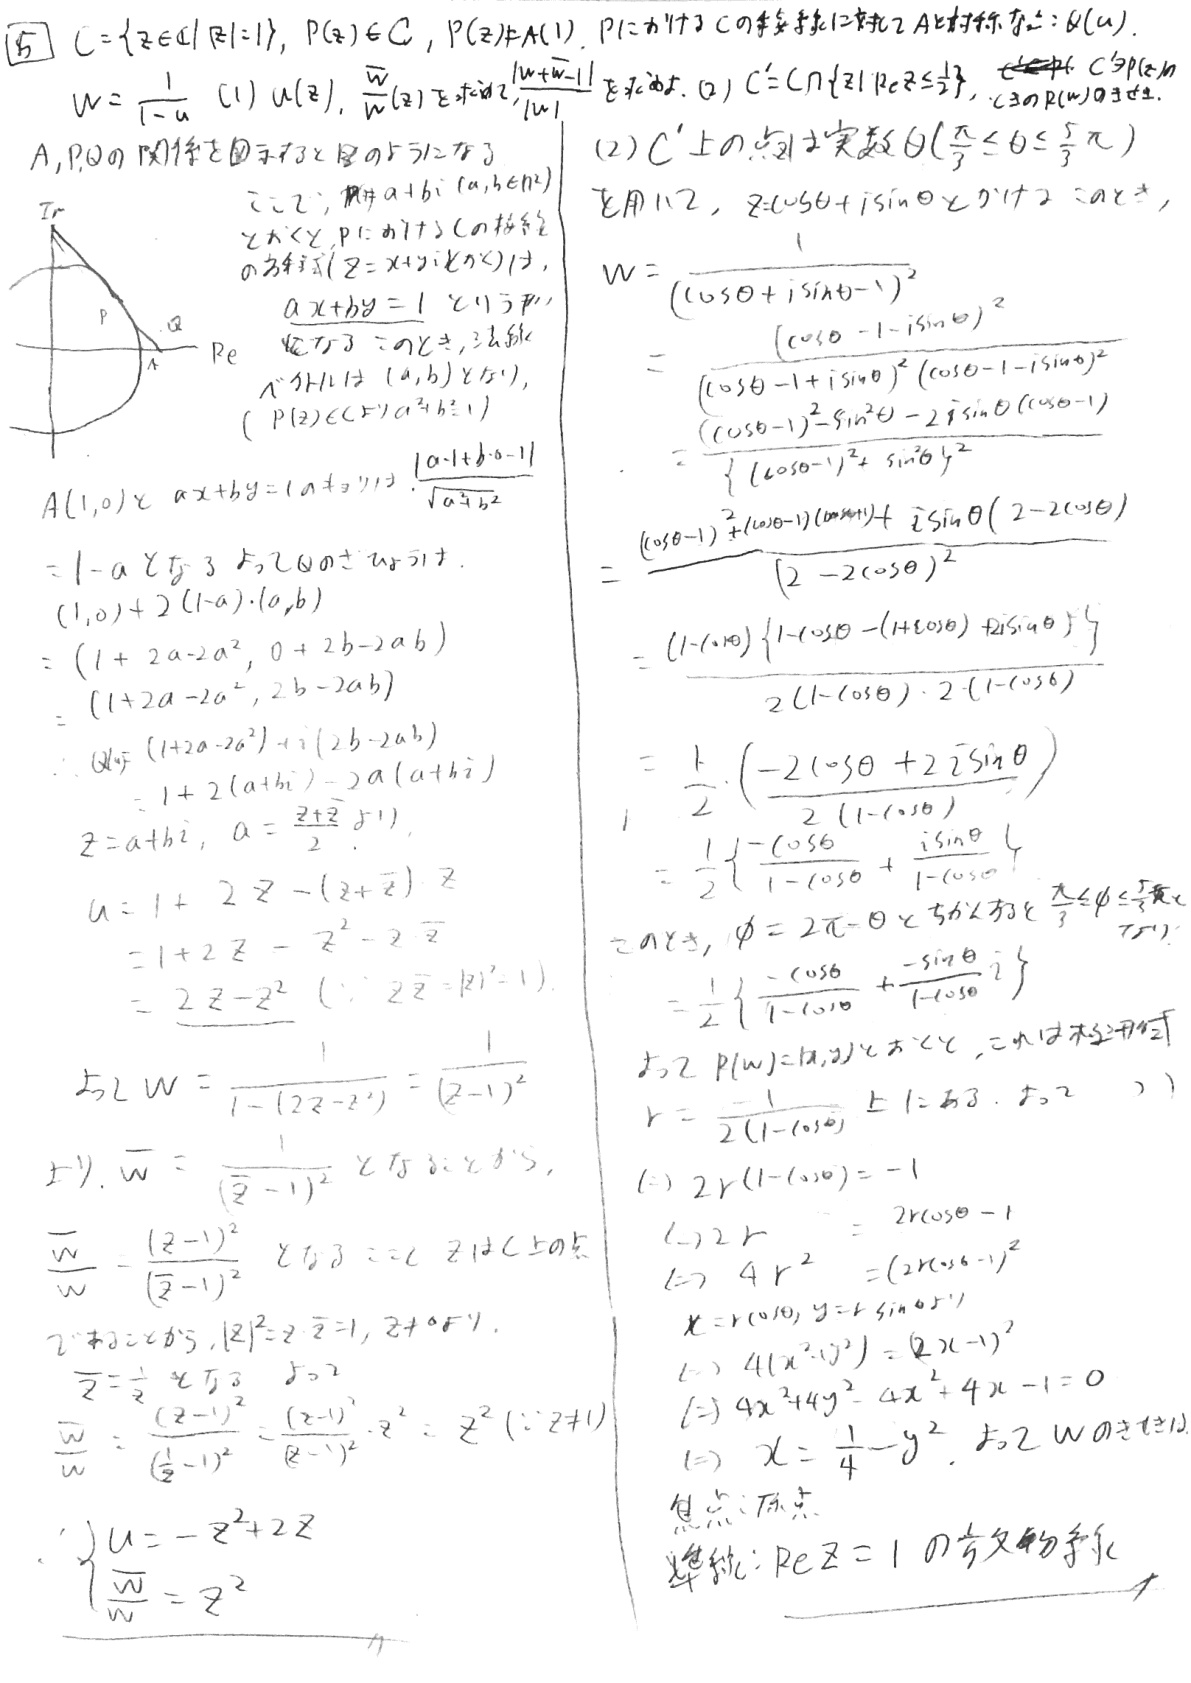 5 C={z∈ℂ| |z|=1}, P(z)∈C, P(z)≠A(1). PにおけるCの接線に対してAと対称な点:Q(u).
w = 1/(1-u) (1) u(z), w̄/w(z)を求めて, |w+w̄-1|/|w| を求めよ. (2) C'=C∩{z| Re z≤1/2}, C'∋P(z)の
ときのR(w)のきせき.
A,P,Qの関係を図示すると図のようになる
Im
P
Q
A
Re
ここで, a+bi (a,b∈ℝ)
とおくと, PにおけるCの接線
の方程式(z=x+yiとおく)は,
ax+by=1 という形
になる このとき, 法線
ベクトルは (a,b)となり,
( P(z)∈Cよりa²+b²=1)
A(1,0)と ax+by=1のキョリは |a·1+b·0-1|/√(a²+b²)
=1-a となる よってQのざひょうは.
(1,0)+2(1-a)·(a,b)
= (1+2a-2a², 0+2b-2ab)
= (1+2a-2a², 2b-2ab)
∴ Q(u)= (1+2a-2a²)+i(2b-2ab)
= 1+2(a+bi)-2a(a+bi)
z=a+bi, a= (z+z̄)/2 より,
u=1+2z-(z+z̄)·z
=1+2z-z²-z·z̄
= 2z-z² (∵ zz̄=|z|²=1).
よって w = 1/(1-(2z-z²)) = 1/(z-1)²
より, w̄ = 1/(z̄-1)² となることから,
w̄/w = (z-1)²/(z̄-1)² となる ここで zはC上の点
であることから, |z|²=z·z̄=1, z≠0より.
z̄=1/z となる よって
w̄/w = (z-1)²/(1/z-1)² = (z-1)²/(z-1)²·z² = z² (∵z≠1)
∴ { u=-z²+2z
w̄/w = z²
(2) C'上の点は実数θ(π/3≤θ≤5/3π)
を用いて, z=cosθ+isinθとかける このとき,
w = 1/(cosθ+isinθ-1)²
= (cosθ-1-isinθ)²/(cosθ-1+isinθ)²(cosθ-1-isinθ)²
= (cosθ-1)²-sin²θ-2isinθ(cosθ-1)/{(cosθ-1)²+sin²θ}²
= (cosθ-1)²+(cosθ-1)(cosθ+1)+isinθ(2-2cosθ)/(2-2cosθ)²
= (1-cosθ){1-cosθ-(1+cosθ)+2isinθ}/2(1-cosθ)·2·(1-cosθ)
= 1/2·(-2cosθ+2isinθ/2(1-cosθ))
= 1/2{-cosθ/1-cosθ + isinθ/1-cosθ}
このとき, φ=2π-θとちかんすると π/3≤φ≤5/3πと
なり:
= 1/2{-cosθ/1-cosθ + -sinθ/1-cosθ i}
よって P(w)=(x,y)とおくと, これは極方程式
r = -1/2(1-cosθ) 上にある. よって
⇔ 2r(1-cosθ)=-1
⇔ 2r = 2rcosθ-1
⇔ 4r² =(2rcosθ-1)²
x=rcosθ, y=rsinθより
⇔ 4(x²+y²)=(2x-1)²
⇔ 4x²+4y²-4x²+4x-1=0
⇔ x=1/4-y². よって wのきせきは
焦点:原点
準線:Re z=1 の放物線